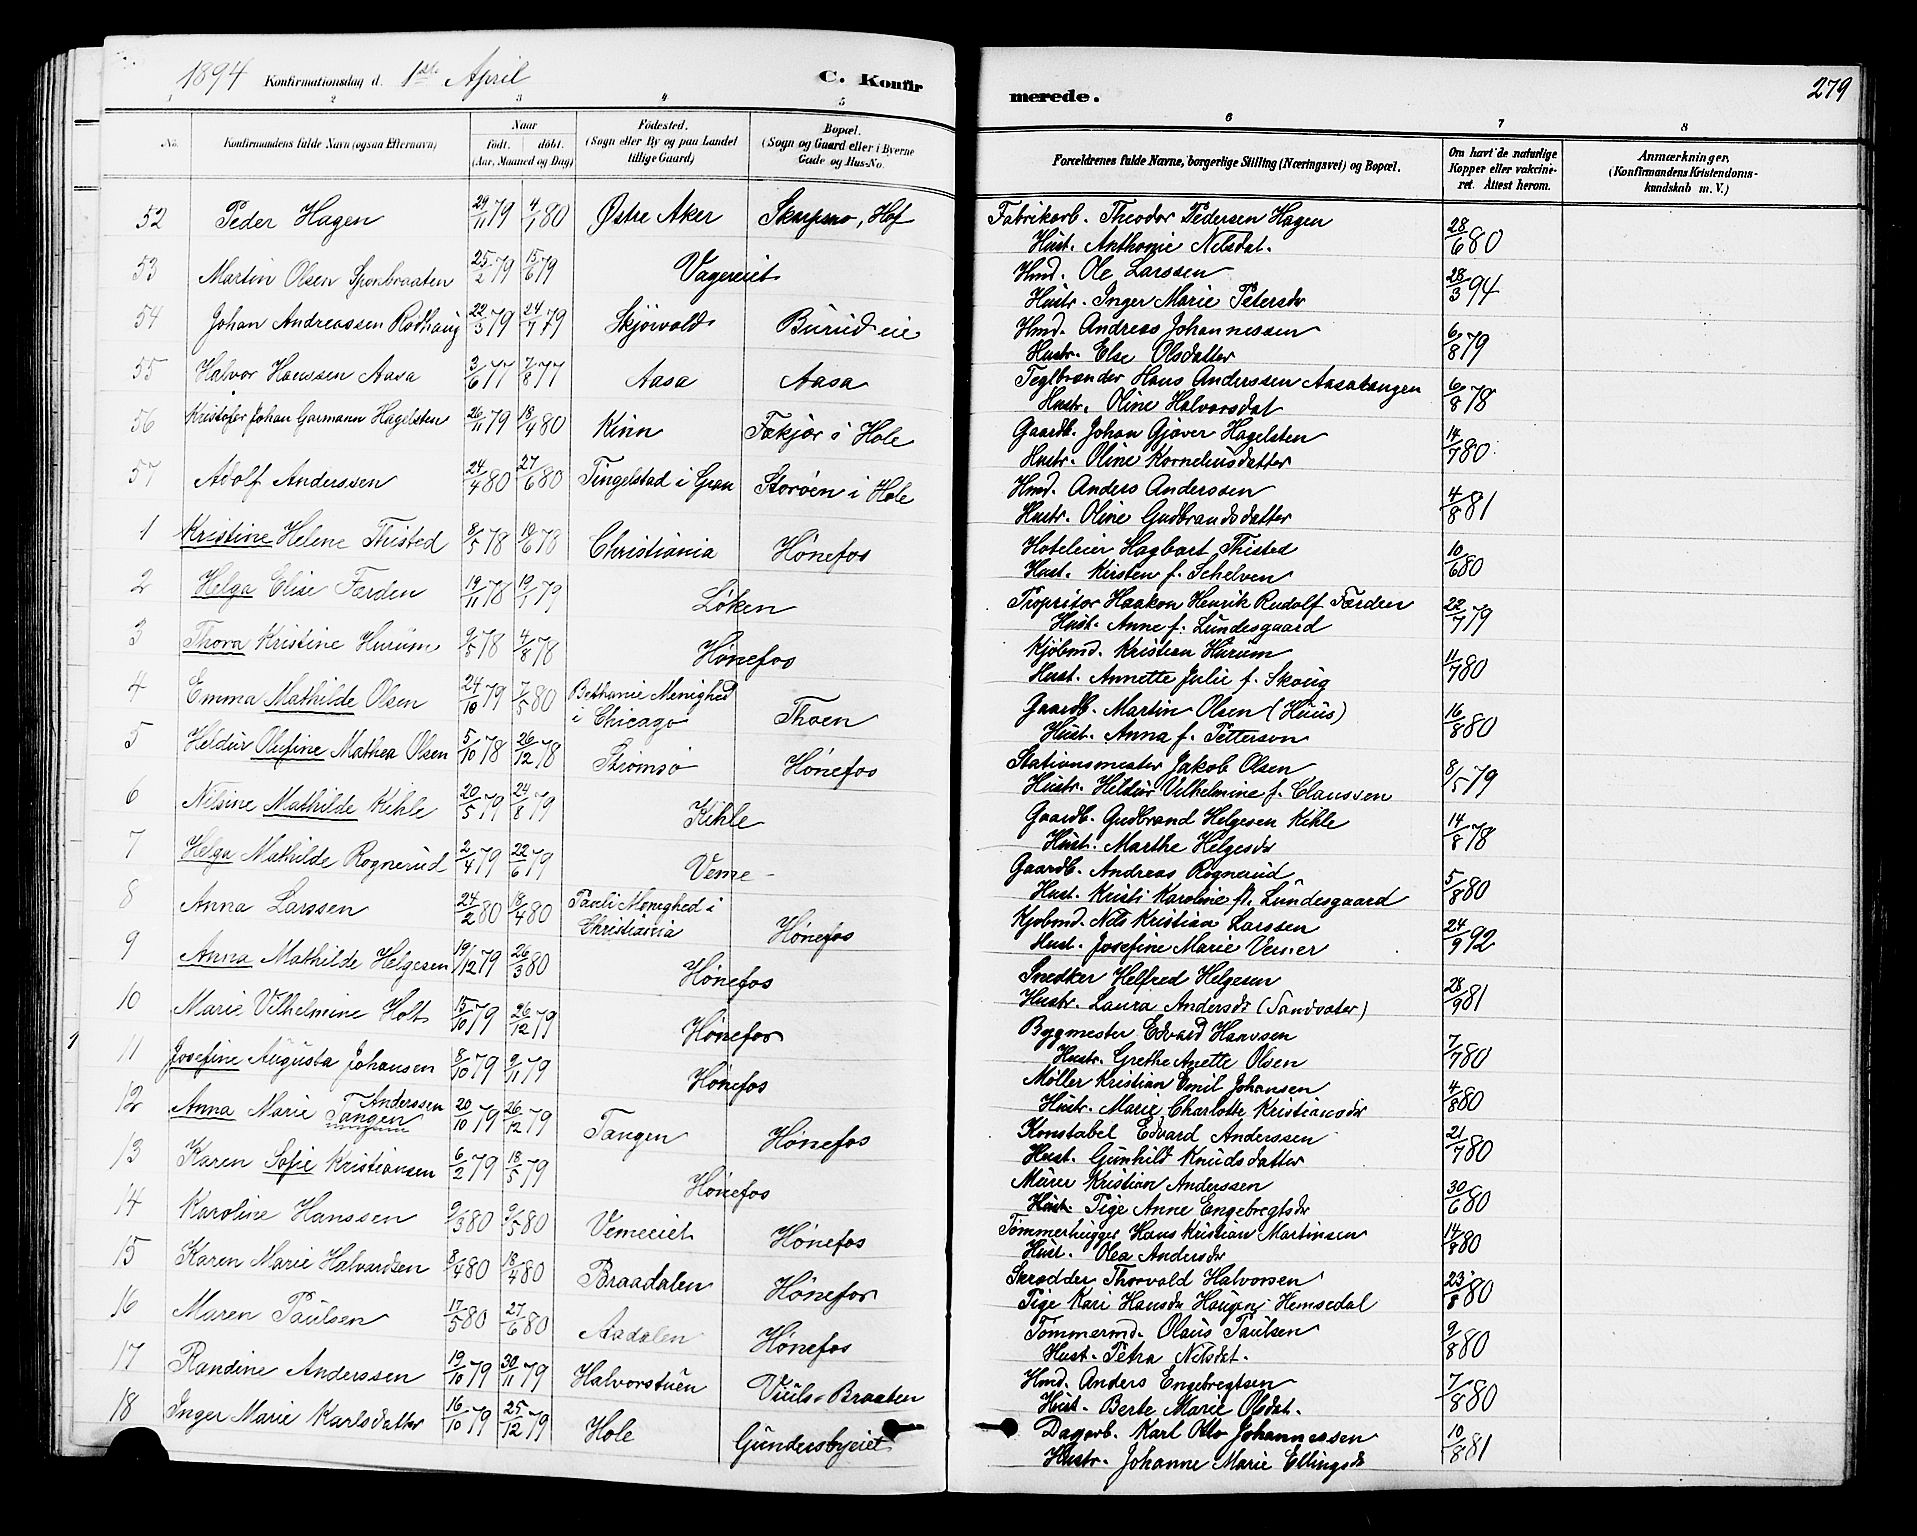 1894 Konfirmationsdag d. 1ste April C. Konfirmerede. 279
1 2 3 4 5 6 7 8
No. Konfirmandens fulde Navn (ogsaa Efternavn) Naar født. døbt. (Aar, Maaned og Dag) Fødested. (Sogn eller By og paa Landet tillige Gaard) Bopæl. (Sogn og Gaard eller i Byerne Gade og Hus-No. Forældrenes fulde Navne, borgerlige Stilling (Næringsvei) og Bopæl. Om havt de naturlige Kopper eller vakcineret. Attest herom. Anmærkninger, (Konfirmandens Kristendomskundskab m. V.)
52 Peder Hagen 29/11 79 4/1 80 Østre Aker Skarpsno, Hof Fabrikarb. Theodor Pedersen Hagen 28/6 80
Hust. Anthonie Nilsdat.
53 Martin Olsen Sponbraaten 25/2 79 15/6 79 Vagereiet Hmd. Ole Larssen 28/3 94
Hustr. Inger Marie Petersdr
54 Johan Andreassen Rødhaug 22/3 79 24/7 79 Skjørvold Burud eie Hmd. Andreas Johannessen 6/8 79
Hustr. Else Olsdatter
55 Halvor Hanssen Aasa 3/6 77 7/8 77 Aasa Aasa Teglbrænder Hans Anderssen Aasatangen 6/8 78
Hustr. Oline Halvorsdat
56 Kristofer Johan Garmann Hagelsten 26/11 79 18/4 80 Kinn Fækjær i Hole Gaardb. Johan Gjøver Hagelsten 14/7 80
Hustr. Oline Kornelinsdatter
57 Adolf Anderssen 24/4 80 27/6 80 Tingelstad i Gran Storøen i Hole Hmd. Anders Anderssen 4/8 81
Hustr. Oline Gudbrandsdatter
1 Kristine Helene Thisted 8/5 78 19/6 78 Christiania Hønefos Hoteleier Hagbart Thisted 10/6 80
Hust. Kirsten f. Schelven
2 Helga Elise Færden 19/11 78 19/1 79 Løken Propritør Haakon Henrik Rudolf Færden 22/7 79
Hust. Anne f. Lundesgaard
3 Thora Kristine Hurum 9/5 78 4/8 78 Hønefos Kjøbmd. Kristian Hurum 11/7 80
Hust. Annette Julie f. Skoug
4 Emma Mathilde Olsen 24/10 79 7/5 80 Bethanie Menighed i Chicago Thoen Gaardb. Martin Olsen (Huus) 16/8 80
Hust. Anna f. Petterson
5 Heldur Olufine Mathea Olsen 5/10 78 26/12 78 Strømsø Hønefos Stationsmester Jakob Olsen 8/5 79
Hustr. Heldur Vilhelmine f. Claussen
6 Nilsine Mathilde Kihle 20/5 79 24/8 79 Kihle Gaardb. Gudbrand Helgesen Kihle 14/8 78
Hust. Marthe Helgesdr
7 Helga Mathilde Rognerud 2/4 79 22/6 79 Veme Gaardb. Andreas Rognerud 5/8 80
Hust. Kristi Karoline f. Lundesgaard
8 Anna Larssen 24/2 80 18/4 80 Pauli Menighed i Christiania Hønefos Kjøbmd. Nils Kristian Larssen 24/9 92
Hust. Josefine Marie Verner
9 Anna Mathilde Helgesen 19/12 79 26/3 80 Hønefos Snedker Helfred Helgesen 28/9 81
Hustr. Laura Andersdr (Sandvater)
10 Marie Vilhelmine Holt 15/10 79 26/12 79 Hønefos Bygmester Edvard Hanssen 7/7 80
Hustr. Grethe Anette Olsen
11 Josefine Augusta Johansen 8/10 79 9/11 79 Hønefos Møller Kristian Emil Johansen 4/8 80
Hustr. Marie Charlotte Kristiansdr
12 Anna Marie Tangen Anderssen 20/10 79 26/12 79 Tangen Hønefos Konstabel Edvard Anderssen 21/7 80
Hust. Gunhild Knudsdatter
13 Karen Sofie Kristiansen 6/2 79 18/5 79 Hønefos Murer Kristian Anderssen 30/6 80
Hust. Pige Anne Engebregtsdr
14 Karoline Hanssen 9/3 80 9/5 80 Vemeeiet Hønefos Tømmerhugger Hans Kristian Martinsen 14/8 80
Hust. Olea Andersdr
15 Karen Marie Halvardsen 8/4 80 18/4 80 Braadalen Hønefos Skrædder Thorvald Halvorsen 23/8 80
Pige Kari Hansdr Haugen, Hemsedal
16 Maren Paulsen 17/5 80 27/6 80 Aadalen Hønefos Tømmermd. Olaus Paulsen 9/8 80
Hust. Petra Nilsdat.
17 Randine Anderssen 19/10 79 30/11 79 Halvorstuen Viuls-Braaten Hmd. Anders Engebregtsen 7/8 80
Hust. Berte Marie Olsdat.
18 Inger Marie Karlsdatter 16/10 79 25/12 79 Hole Gundersbyeiet Dagarb. Karl Otto Johannessen 10/8 81
Hustr. Johanne Marie Ellingsdr